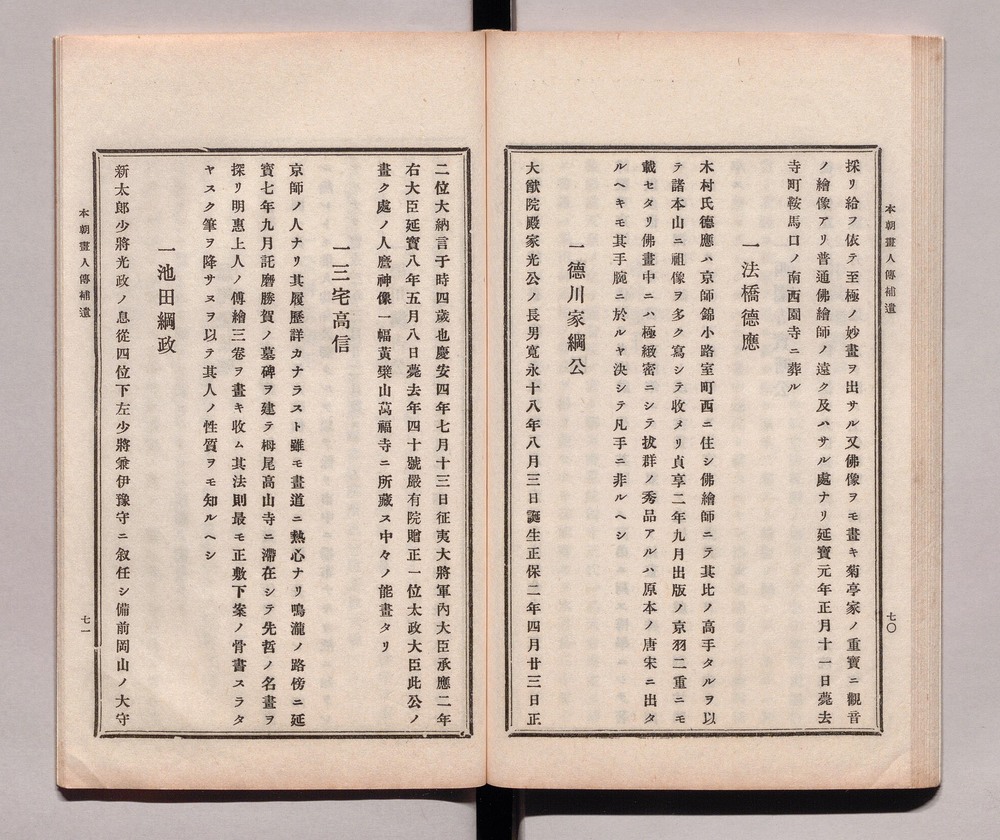 本朝畫人傳補遺
七〇
採リ給フ依テ至極ノ妙畫ヲ出サル又佛像ヲモ畫キ菊亭家ノ重寶ニ觀音
ノ繪像アリ普通佛繪師ノ遠ク及ハサル處ナリ延寶元年正月十一日薨去
寺町鞍馬口ノ南西園寺ニ葬ル
一法橋德應
木村氏德應ハ京師錦小路室町西ニ住シ佛繪師ニテ其比ノ高手タルヲ以
テ諸本山ニ祖像ヲ多ク寫シテ收メリ貞享二年九月出版ノ京羽二重ニモ
載セタリ佛畫中ニハ極緻密ニシテ拔群ノ秀品アルハ原本ノ唐宋ニ出タ
ルヘキモ其手腕ニ於ルヤ決シテ凡手ニ非ルヘシ
一德川家綱公
大猷院殿家光公ノ長男寛永十八年八月三日誕生正保二年四月廿三日正
二位大納言于時四歳也慶安四年七月十三日征夷大將軍內大臣承應二年
右大臣延寶八年五月八日薨去年四十號嚴有院贈正一位太政大臣此公ノ
畫ク處ノ人麿神像一幅黃檗山萬福寺ニ所藏ス中々ノ能畫タリ
一三宅高信
京師ノ人ナリ其履歷詳カナラスト雖モ畫道ニ熱心ナリ鳴瀧ノ路傍ニ延
寶七年九月託磨勝賀ノ墓碑ヲ建テ栂尾高山寺ニ滯在シテ先哲ノ名畫ヲ
探リ明惠上人ノ傳繪三卷ヲ畫キ收ム其法則最モ正敷下案ノ骨書スラタ
ヤスク筆ヲ降サヌヲ以テ其人ノ性質ヲモ知ルヘシ
一池田綱政
新太郎少將光政ノ息從四位下左少將兼伊豫守ニ叙任シ備前岡山ノ大守
本朝畫人傳補遺
七一